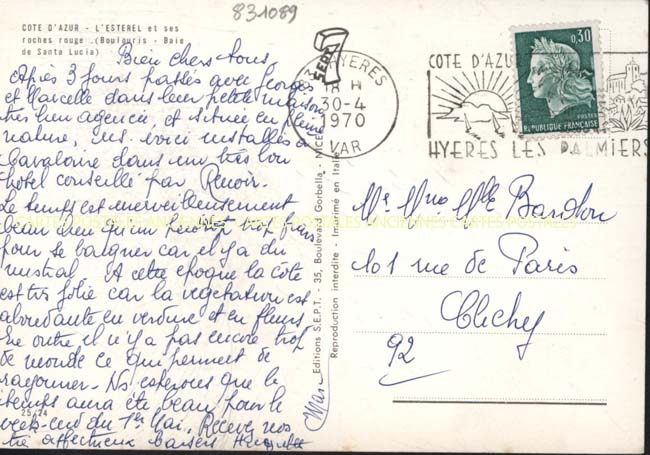 831089
COTE D'AZUR - L'ESTEREL et ses
roches rouge (Boulouris - Baie
de Santa Lucia)
Bien chers tous
Après 3 jours passés avec Georges
et Marcelle dans leur petite maison
très bien agencée et située en pleine
nature, ns voici installés à
Cavalaire dans un très bon
hotel conseillé par Renoir.
Le temps est merveilleusement
beau bien qu'un peu trop frais
pour se baigner car il y a du
mistral. A cette époque la côte
est très jolie car la végétation est
abondante en verdure et en fleurs
En outre il n'y a pas encore trop
de monde ce qui permet de
rayonner. Ns espérons que le
temps aura été beau pour le
week-end du 1er Mai. Recevez nos
très affectueux baisers Huguette
Max
25.74
Editions S.E.P.T. - 35, Boulevard Gorbella - NICE
Reproduction interdite - Imprimé en Italie
SEPT
HYERES
18 H
30-4
1970
VAR
COTE D'AZUR
HYERES LES PALMIERS
0,30
POSTES
REPUBLIQUE FRANÇAISE
Mr Mme Mlle Bardou
101 rue de Paris
Clichy
92
CARTES POSTALES ANCIENNES CARTES POSTALES ANCIENNES CARTES POSTALES